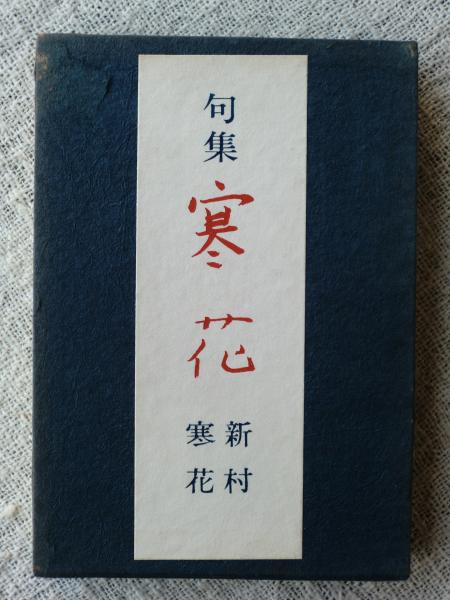 句集
寒花
新村
寒花